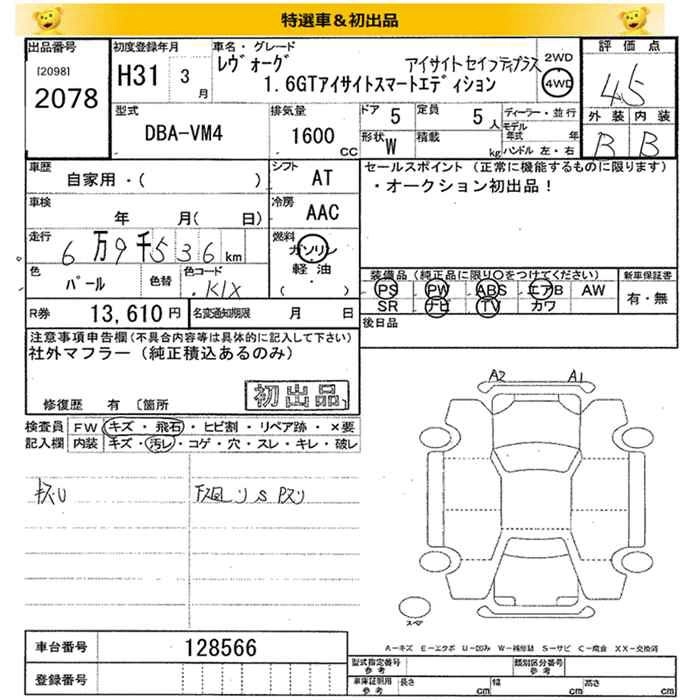 特選車＆初出品
出品番号 初度登録年月 車名・グレード 評価点
[2098] 2078 H31 3月 レヴォーグ アイサイトセイフティプラス 2WD 4WD 4.5
1.6GTアイサイトスマートエディション
型式 排気量 ドア 5 定員 5人 ディーラー・並行 外装 内装
DBA-VM4 1600CC 形状 W 積載 kg モデル年式 年 ハンドル 左・右 B B
車歴 シフト セールスポイント（正常に機能するものに限ります）
自家用・( ) AT ・オークション初出品！
車検 年 月( 日) 冷房 AAC
走行 6万9千536km 燃料 ガソリン 軽油 ( )
色 パール 色替 色コード K1X
装備品（純正品に限り○をつけてください） 新車保証書
PS PW ABS エアB AW 有・無
SR ナビ TV カワ
R券 13,610円 名変通知期限 月 日 後日品
注意事項申告欄（不具合内容等は具体的に記入して下さい）
社外マフラー（純正積込あるのみ）
初出品
修復歴 有 〔箇所 〕
A2 A1
検査員 FW キズ・飛石・ヒビ割・リペア跡・×要
記入欄 内装 キズ・汚レ・コゲ・穴・スレ・キレ・破レ
キズU
スペア
車台番号 128566
A－キズ E－エクボ U－凹み W－補修跡 S－サビ C－腐食 XX－交換済
登録番号
型式指定番号 参考 類別区分番号 参考
車庫証明用 参考 長さ cm 幅 cm 高さ cm